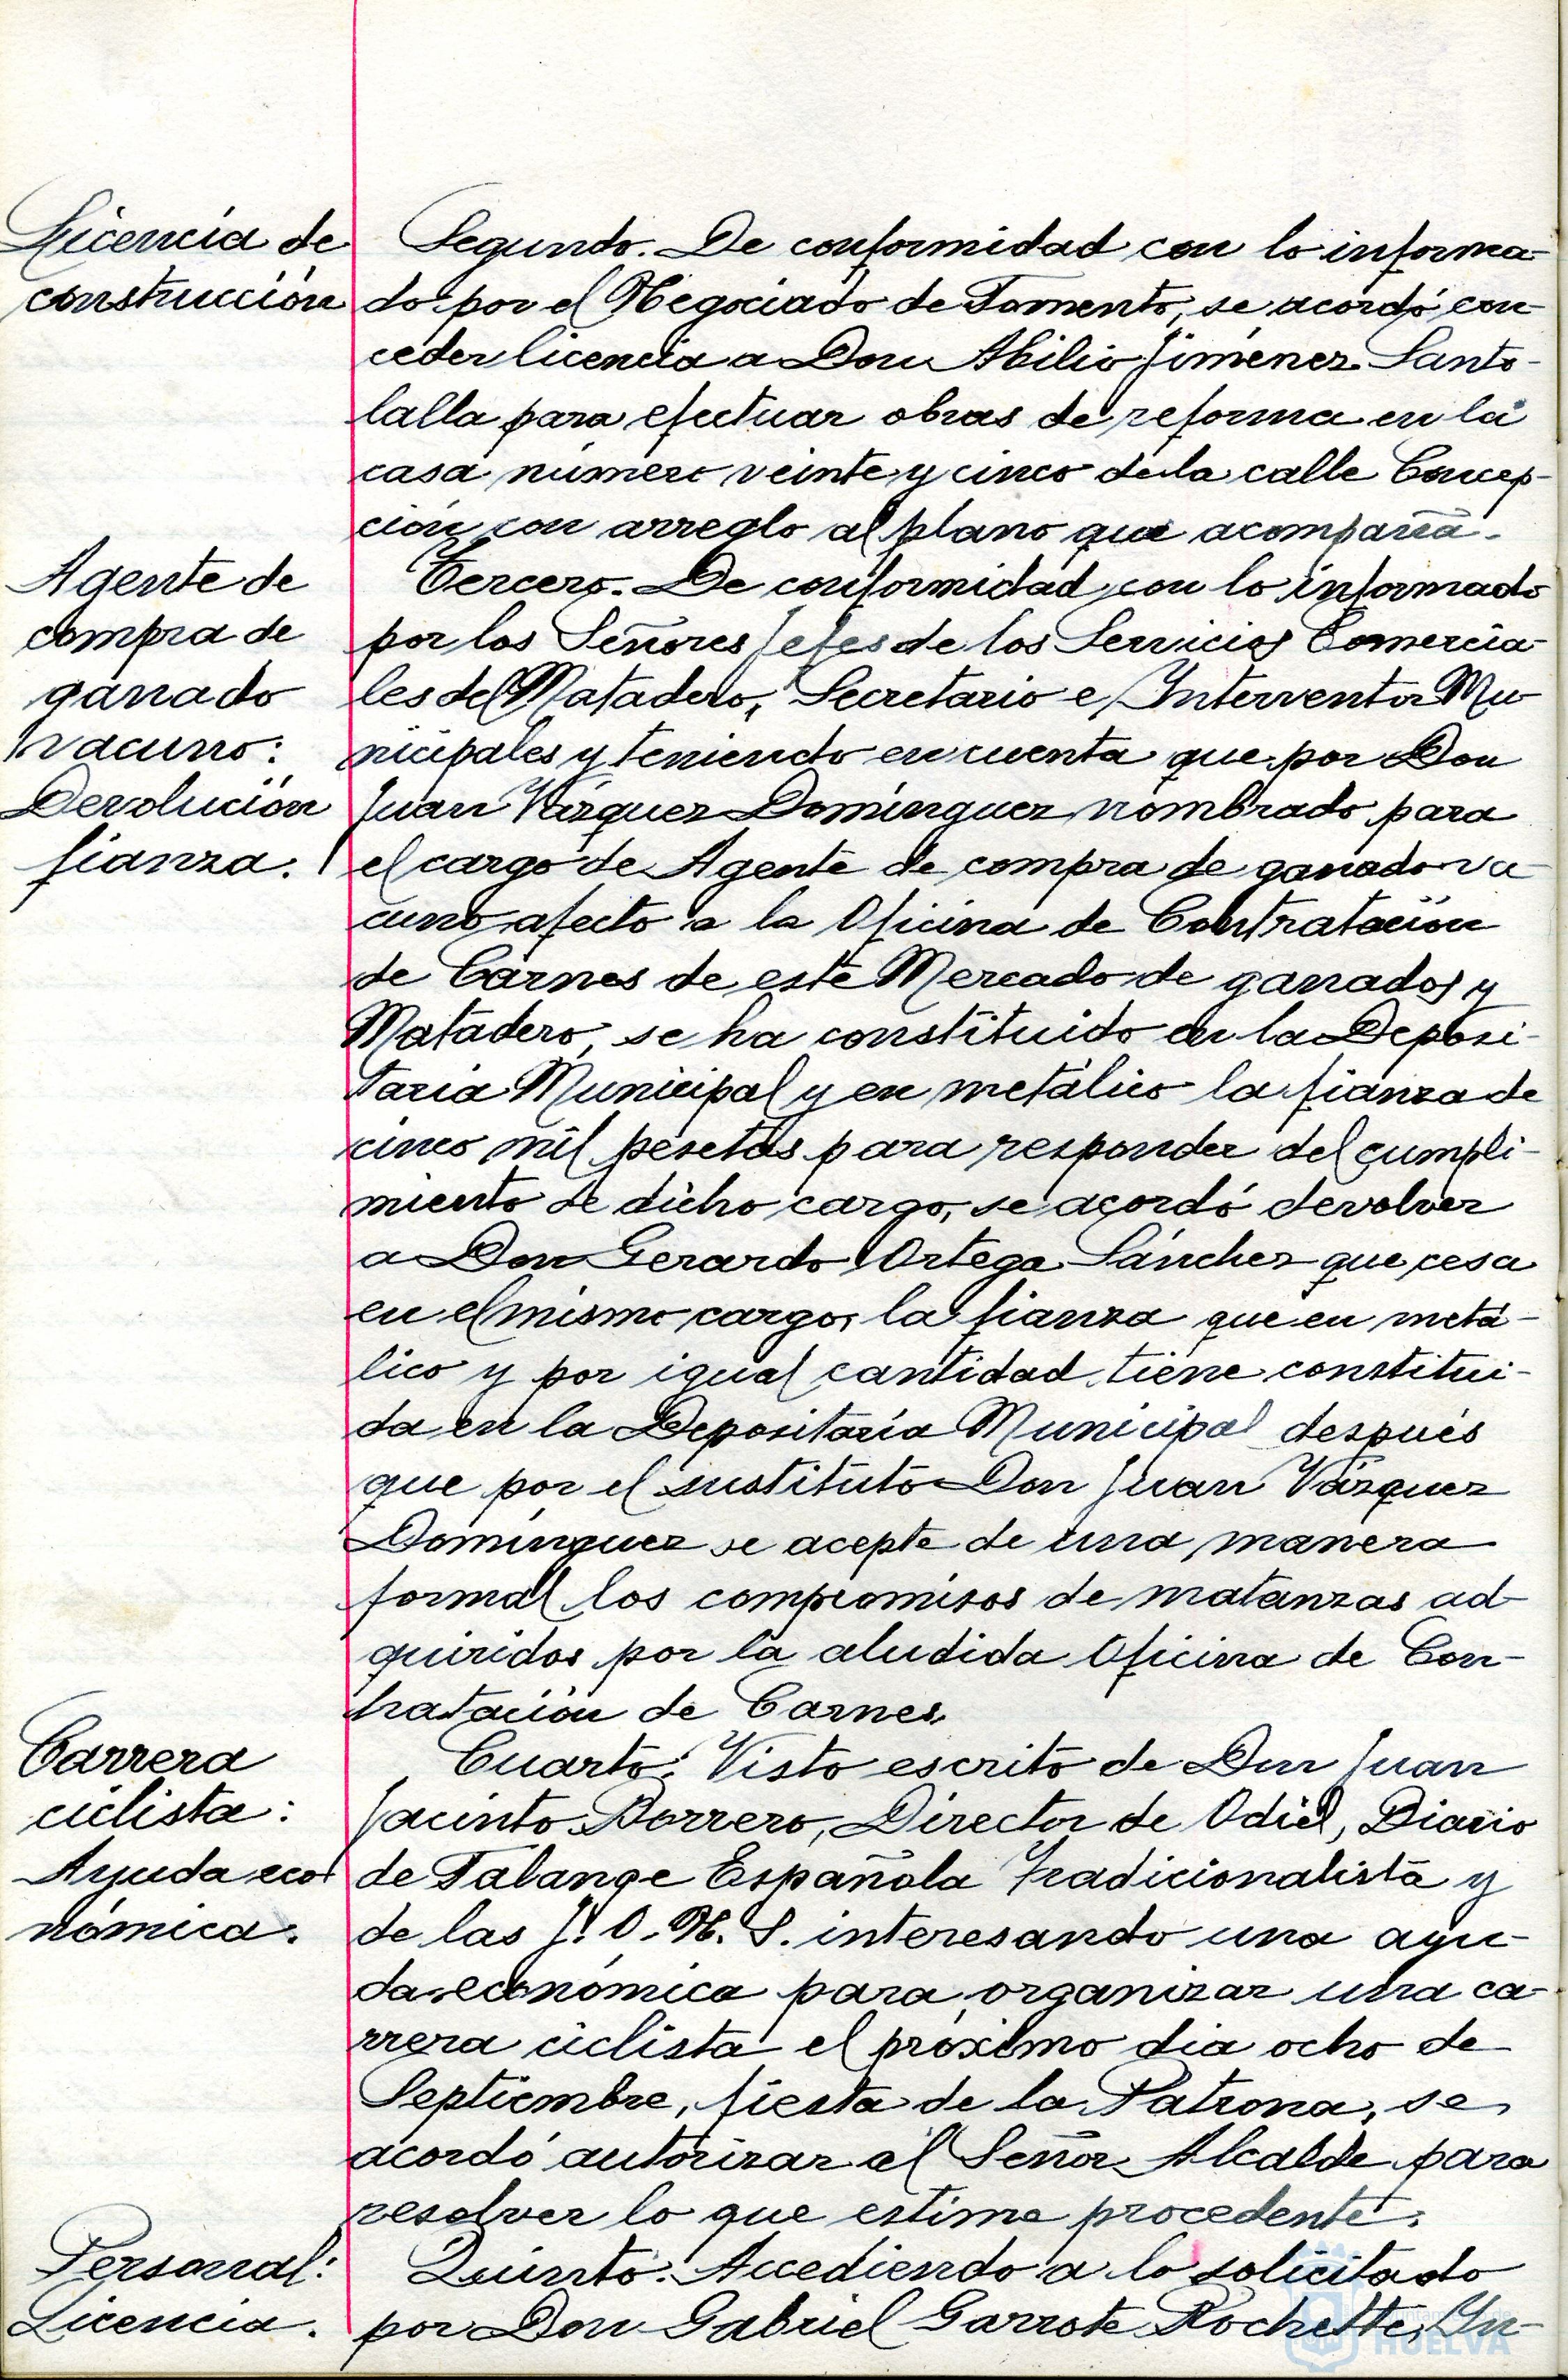 Licencia de
construcción
Segundo. De conformidad con lo informa-
do por el Negociado de Fomento, se acordó con-
ceder licencia a Don Abilio Jiménez Santo-
lalla para efectuar obras de reforma en la
casa número veinte y cinco de la calle Concep-
ción con arreglo al plano que acompaña.
Agente de
compra de
ganado
vacuno:
Devolución
fianza.
Tercero. De conformidad con lo informado
por los Señores Jefes de los Servicios Comercia-
les del Matadero, Secretario e Interventor Mu-
nicipales y teniendo en cuenta que por Don
Juan Vázquez Domínguez nombrado para
el cargo de Agente de compra de ganado va-
cuno afecto a la Oficina de Contratación
de Carnes de este Mercado de ganados y
Matadero, se ha constituido en la Deposi-
taria Municipal y en metálico la fianza de
cinco mil pesetas para responder del cumpli-
miento de dicho cargo, se acordó devolver
a Don Gerardo Ortega Sánchez que cesa
en el mismo cargo, la fianza que en metá-
lico y por igual cantidad tiene constitui-
da en la Depositaría Municipal después
que por el sustituto Don Juan Vázquez
Domínguez se acepte de una manera
formal los compromisos de matanzas ad-
quiridos por la aludida Oficina de Con-
tratación de Carnes.
Carrera
ciclista:
Ayuda eco-
nómica.
Cuarto. Visto escrito de Don Juan
Jacinto Borrero, Director de Odiel, Diario
de Falange Española Tradicionalista y
de las J. O. N. S. interesando una ayu-
da económica para organizar una ca-
rrera ciclista el próximo dia ocho de
Septiembre, fiesta de la Patrona, se
acordó autorizar al Señor Alcalde para
resolver lo que estime procedente.
Personal:
Licencia.
Quinto. Accediendo a lo solicitado
por Don Gabriel Garrote Rochette, In-
Ayuntamiento de
HUELVA